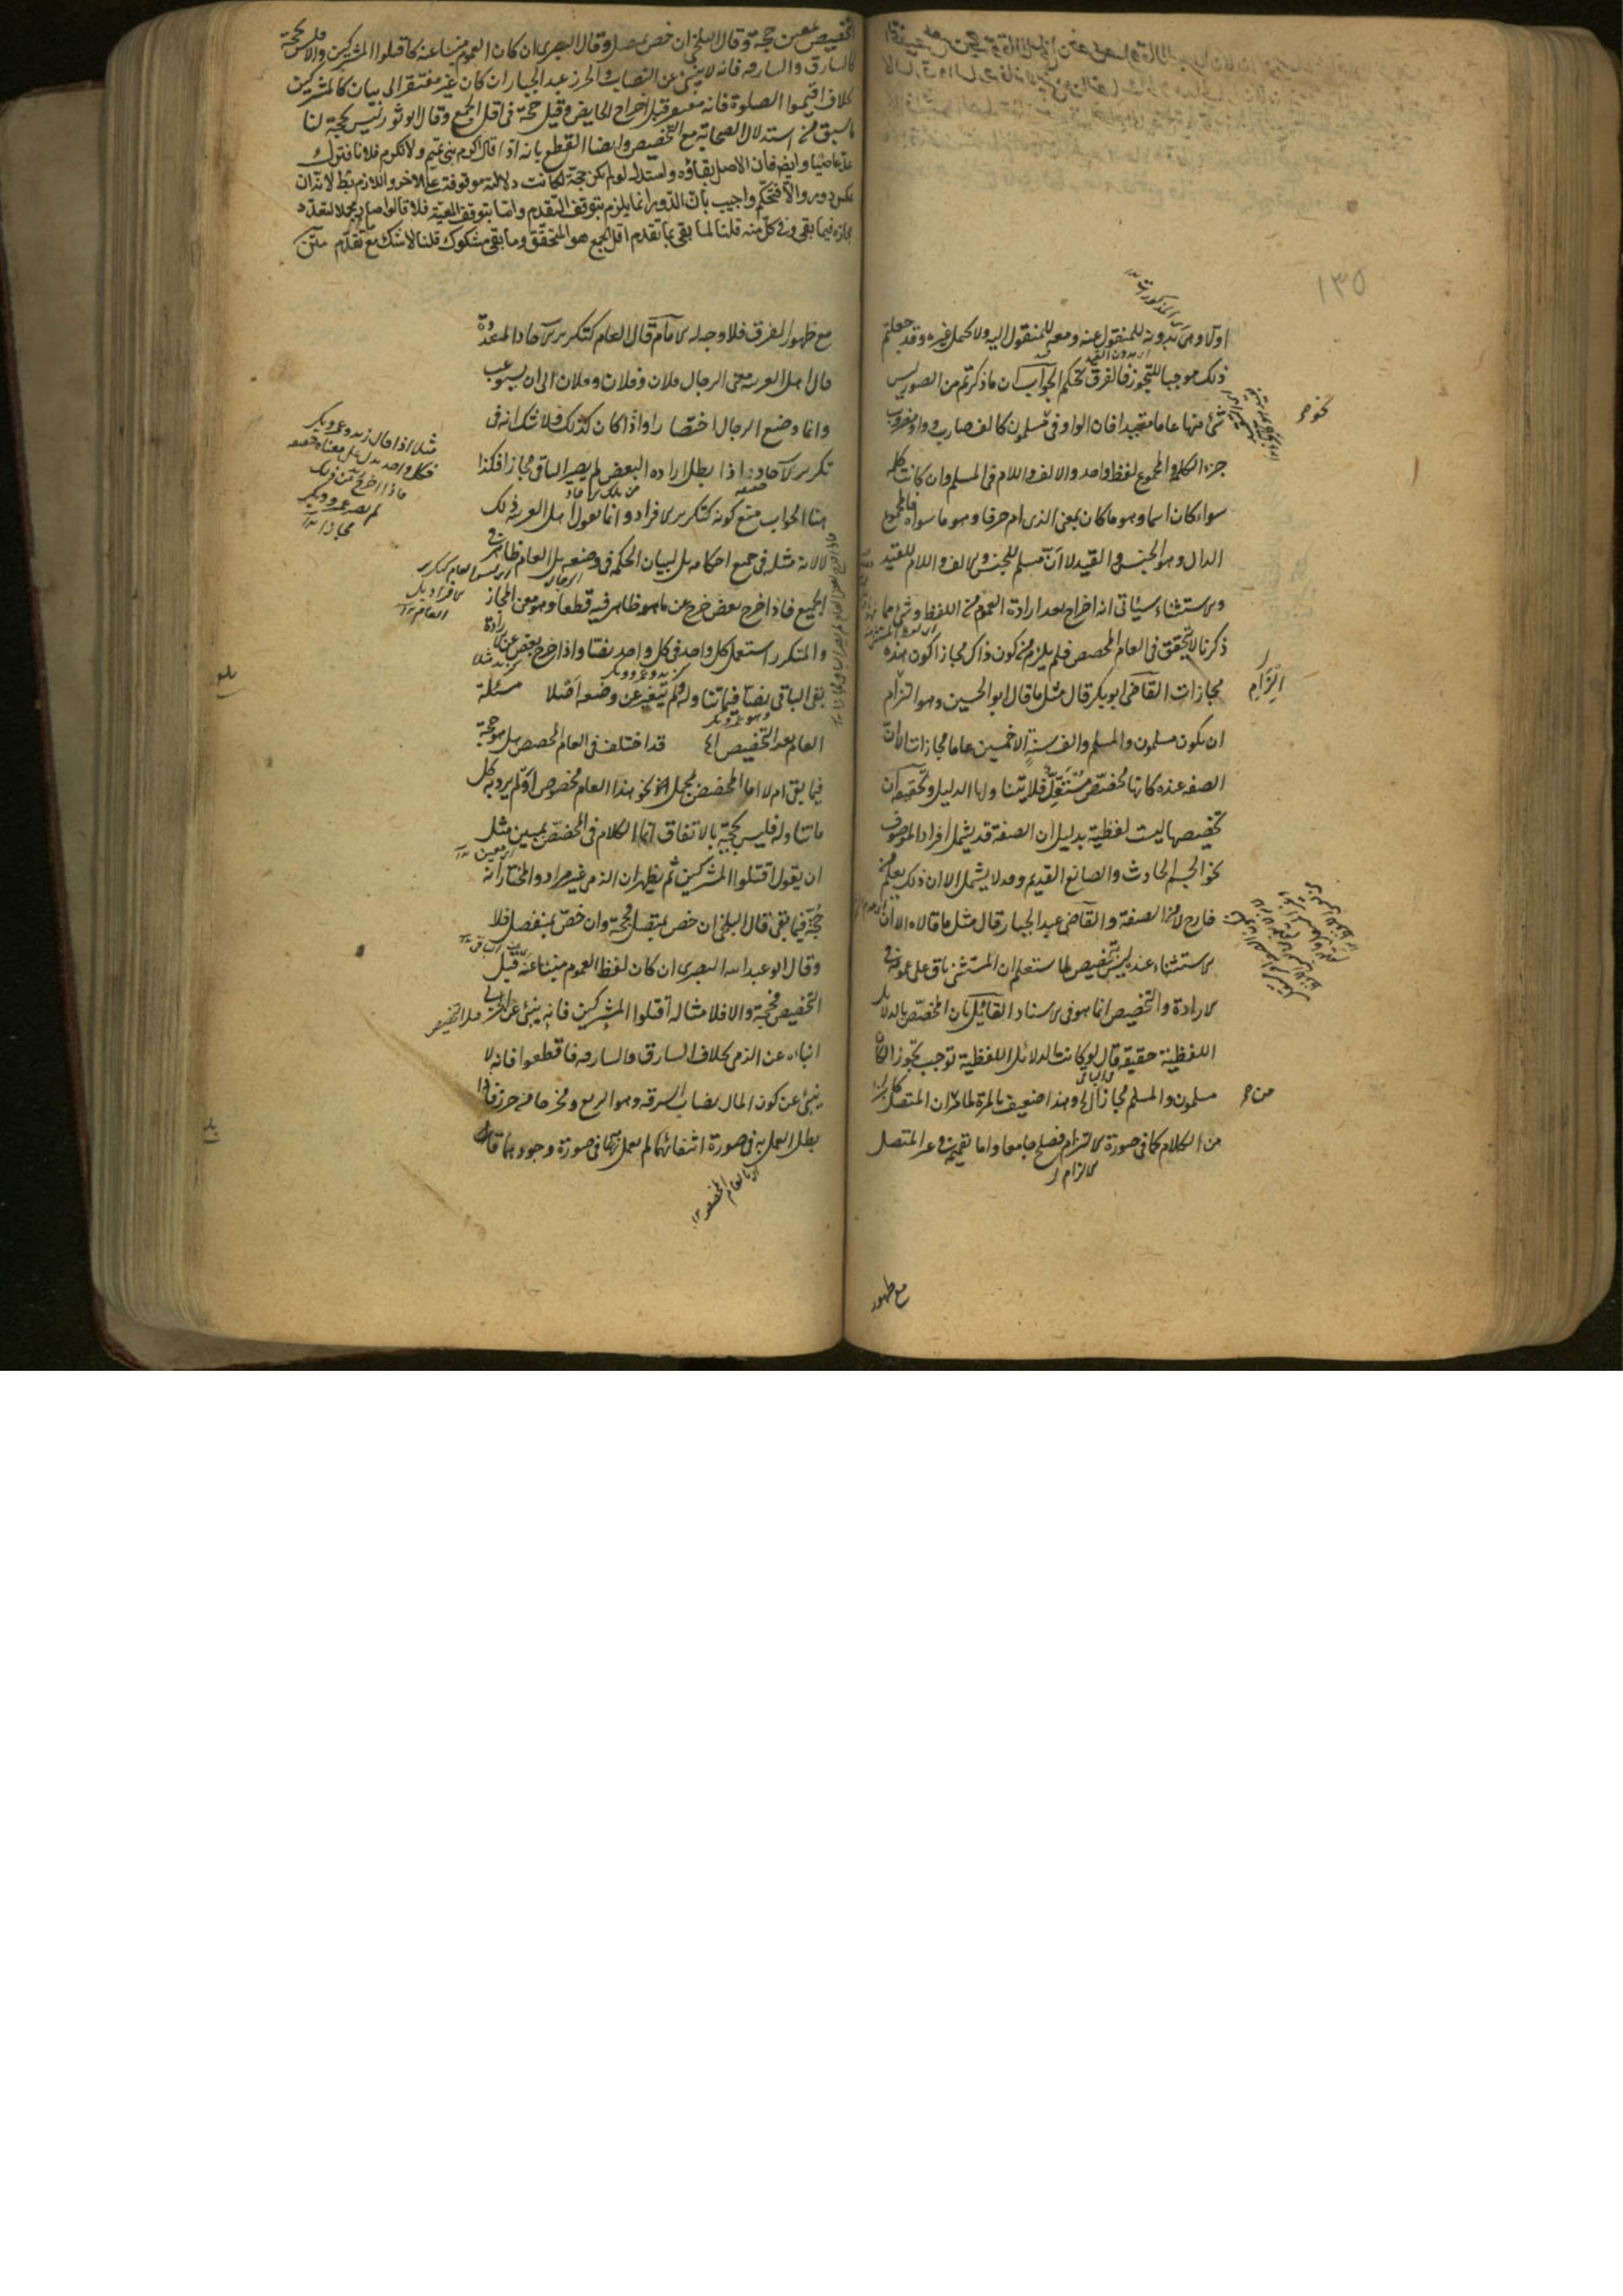 ١٣٥
اولا وهى بدونه للمنقول عنه ومعه للمنقول اليه ولا يحتمل غيره وقد جعلتم
ذلك موجبا للتجوز فالفرق تحكم الجواب ان ما ذكرتم من الصور ليس
شئ منها عاما مقيدا فان الواو فى مسلمون كالف ضارب وواو مضروب
جزء الكلمة والمجموع لفظ واحد والالف واللام فى المسلم وان كانت كلمة
سواء كان اسما وهو ما كان بمعنى الذى ام حرفا وهو ما سواه فالمجموع
الدال وهو الجنس والقيد لا ان مسلم للجنس والالف واللام للقيد
والاستثناء سيأتى انه اخراج بعد ارادة العموم من اللفظ وشئ مما
ذكرنا لا يتحقق فى العام المخصص فلم يلزم من كون ذاك مجازا كون هذه
مجازات القاضى ابو بكر قال مثل ما قال ابو الحسين وهو التزام
ان يكون مسلمون والمسلم والف سنة الا خمسين عاما مجازات الا ان
الصفة عنده كانها مخصص مستقل فلا يتناولها الدليل وتحقيقه ان
تخصيصها ليست لفظية بدليل ان الصفة قد يشمل افراد الموصوف
نحو الجسم الحادث والصانع القديم وقد لا يشمل الا ان ذلك يعلم من
خارج لا من الصفة والقاضى عبد الجبار قال مثل ما قالاه الا ان
الاستثناء عنده ليس بتخصيص لما ستعلم ان المستثنى باق على عمومه فى
الارادة والتخصيص انما هو فى الاسناد القائل بان المخصص بالدلائل
اللفظية حقيقة قال لو كانت الدلائل اللفظية توجب تجوزا لكان
مسلمون والمسلم مجازا الخ وهذا ضعيف بالمرة لما مر ان المتصل
من الكلام كما فى صورة الالزام فصلح جامعا واما تعميمه فى غير المتصل
مع ظهور
التخصيص بمعين حجة وقال البلخى ان خص بمتصل وقال البصرى ان كان العموم منبئا عنه كاقتلوا المشركين والا فليس بحجة
كالسارق والسارقة فانه لا ينبئ عن النصاب والحرز عبد الجبار ان كان غير مفتقر الى بيان كالمشركين
بخلاف اقيموا الصلوة فانه مفتقر قبل اخراج الحايض وقيل حجة فى اقل الجمع وقال ابو ثور ليس بحجة لنا
ما سبق من استدلال الصحابة مع التخصيص وايضا القطع بانه اذا قال اكرم بنى تميم ولا تكرم فلانا فترك
عد عاصيا وايض فان الاصل بقاؤه واستدل لو لم يكن حجة لكانت دلالته موقوفة على الاخر واللازم بط لانه ان
عكس دور والا فتحكم واجيب بان الدور انما يلزم بتوقف التقدم واما بتوقف المعية فلا قالوا صار مجملا لتعدد
مجازه فيما بقى وفى كل منه قلنا لما بقى بما تقدم اقل الجمع هو المتحقق وما بقى مشكوك قلنا لا شك مع ما تقدم متن
مع ظهور الفرق فلا وجه له الامام قال العام كتكرير الآحاد المتعددة
قال اهل العربية معنى الرجال فلان وفلان وفلان الى ان يستوعب
وانما وضع الرجال اختصارا واذا كان كذلك فلا شك انه فى
تكرير الآحاد اذا بطل ارادة البعض لم يصير الباقى مجازا فكذا
هنا الجواب منع كونه كتكرير الافراد وانما يقول اهل العربية ذلك
لا لانه مثله فى جميع احكامه بل لبيان الحكمة فى وضعه بل العام ظاهر فى
الجميع فاذا خرج بعض خرج عن ما هو ظاهر فيه قطعا وهو معنى المجاز
والمتكرر استعمل كل واحد فى كل واحد نصا واذا خرج بعض عن الارادة
بقى الباقى نصا فيما تناوله ولم يتغير عن وضعه اصلا مسئلة
العام بعد التخصيص الخ قد اختلف فى العام المخصص هل هو حجة
فيما بقى ام لا اما المخصص بمجمل نحو هذا العام مخصوص او لم يرد به كل
ما تناوله فليس بحجة بالاتفاق انما الكلام فى المخصص بمبين مثل
ان يقول اقتلوا المشركين ثم يظهر ان الذمى غير مراد والمختار انه
حجة فيما بقى قال البلخى ان خص بمتصل فحجة وان خص بمنفصل فلا
وقال ابو عبد الله البصرى ان كان لفظ العموم منبئا عنه قبل
التخصيص فحجة والا فلا مثاله اقتلوا المشركين فانه ينبئ عن الحربى
انباءه عن الذمى بخلاف السارق والسارقة فاقطعوا فانه لا
ينبئ عن كون المال نصاب السرقة وهو الربع ومخرجا من حرز فاذا
بطل العمل به فى صورة انتفائهما لم يعمل به فى صورة وجودهما قال
مثلا اذا قال زيد وعمرو وبكر
فكل واحد يدل على معناه حقيقة
فاذا اخرج زيد من ذلك
لم يصر عمرو وبكر
مجازا